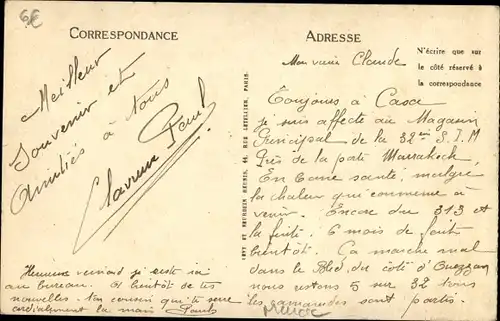 6€
CORRESPONDANCE
ADRESSE
N'écrire que sur
le côté réservé à
la correspondance
Meilleur
Souvenir et
Amitiés à tous
Paul
LÉVY ET NEURDEIN RÉUNIS, 44, RUE LETELLIER, PARIS.
Mon vieux Claude
Toujours à Casa
je suis affecté au Magasin
Principal de la 32em S.I.M
Près de la porte Marrakech
En bonne santé, malgré
la chaleur qui commence à
venir. Encore du 313 et
la fuite. 6 mois de fait
bientôt. Ça marche mal
dans le Bled, du côté d'Ouezzan
nous restons 5 sur 32 tous
les camarades sont partis.
je reste ici
au bureau, à bientôt de tes
nouvelles. Ton cousin qui te serre
cordialement la main Paul
Maroc